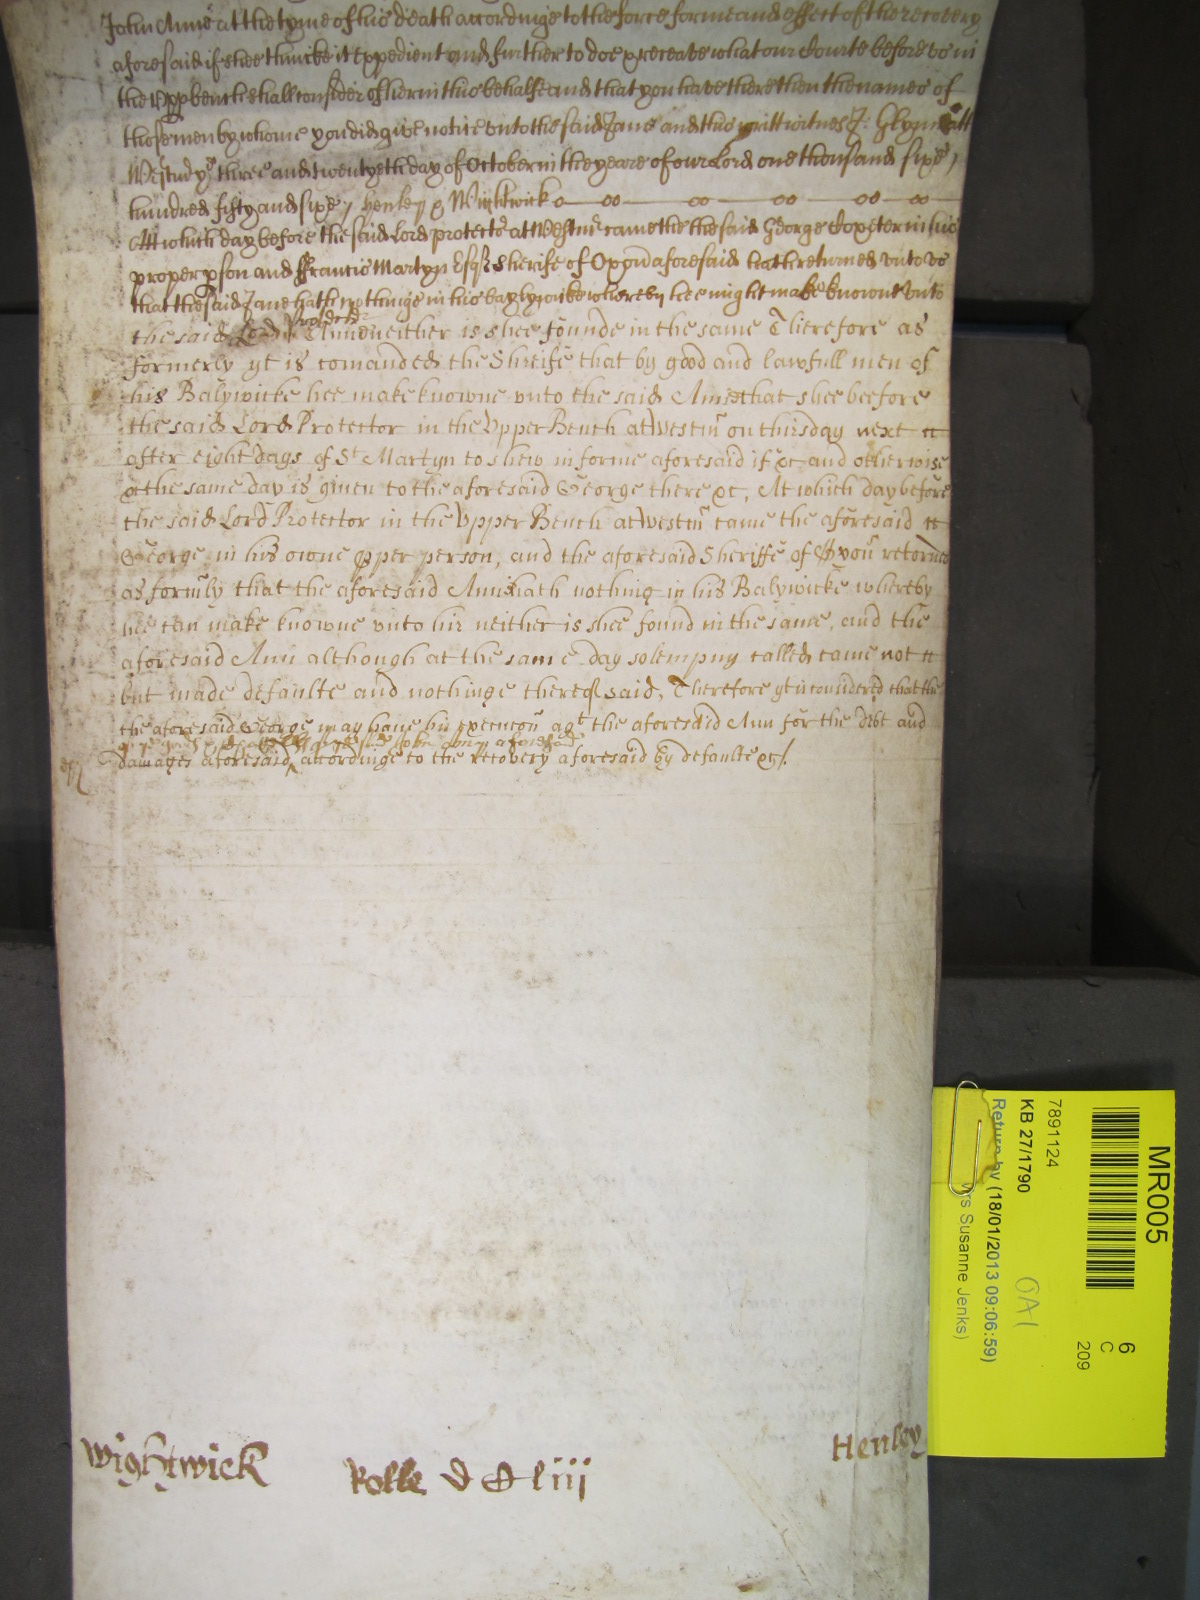 John Anne at the tyme of his death accordinge to the force forme and effect of the recovery
aforesaid if shee thincke it expedient and further to doe & receave what our Courte before us in
the Upp bench shall consider of her in this behalfe and that you have there then the names of
those men by whome you did give notice unto the said Jane and this writt witnes J: Glynn att
Westmr ye three and twentyeth day of October in the yeare of our Lord one thousand sixe
hundred fifty and sixe / Henley & Wightwick
Att which day before the said Lord protector at Westmr came the said George Coxeter in his
proper pson and ffrancis Martyn Esqr Sherife of Oxon aforesaid hath returned unto us
that the said Jane hath nothinge in his baylywike whereby hee might make knowne unto
the said Ann neither is shee founde in the same Therefore as
formerly yt is comanded the Shreife that by good and lawfull men of
his Balywicke hee make knowne unto the said Ann that shee beefore
the said Lord Protector in the Upper Bench at Westmr on thirsday next
after eight days of St Martyn to shew in forme aforesaid if &c and otherwise
& the same day is given to the aforesaid George there &c, At which day before
the said Lord Protector in the Upper Bench at Westmr came the aforesaid
George in his owne pper person, and the aforesaid Sheriffe of Oxon retorned
as formly that the aforesaid Ann hath nothing in his Balywicke whereby
hee can make knowne unto hir neither is shee found in the same, and the
aforesaid Ann although at the same day solempny called came not
but made defaulte and nothinge thereof said, Therefore yt is considered that the
the aforesaid George may have his execucon agt the aforesaid Ann for the debt and
of the said John Ann aforesaid
damages aforesaid accordinge to the recovery aforesaid by defaulte &c /.
Wightwick
Rolle D C liii
Henley
MR005
6
C
209
7891124
KB 27/1790
OA1
Return by (18/01/2013 09:06:59)
Mrs Susanne Jenks)